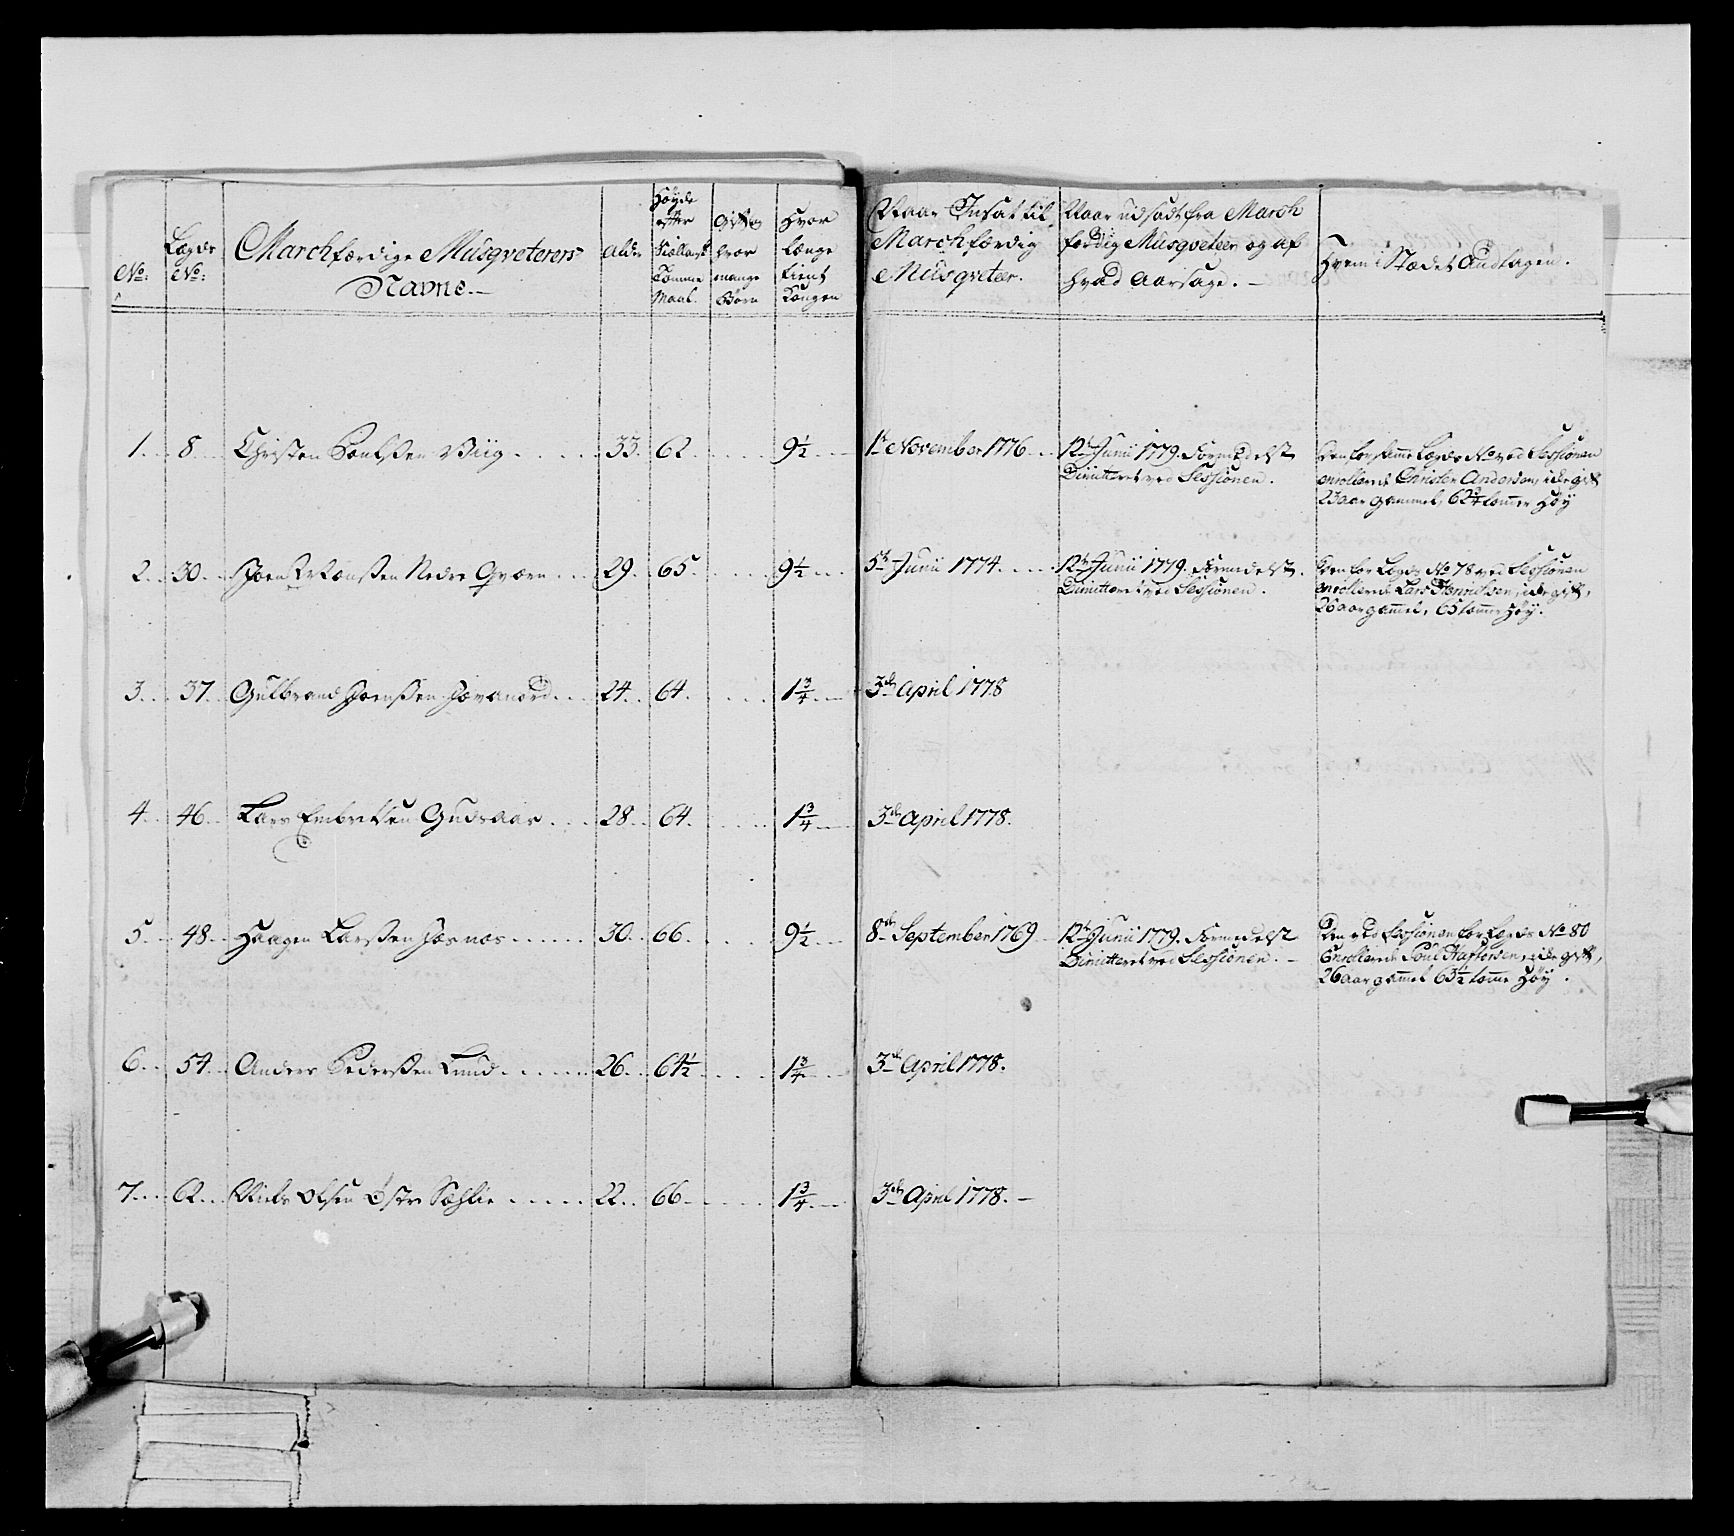 No: Lægds No: Marchfærdige Musqveterers Navne.— Alder Høyde efter Siællandsk Tomme Maal. Gift og hvor mange Børn Hvor længe tient Kongen Naar Insat til Marchfærdig Musqveter. Naar udsadt fra March færdig Musqveteer og af hvad Aarsage.— Hvem i Stædet Andtagen.
1. 8. Christen Poulsen Viig 33. 62. 9½ 1te November 1776. 12te Junii 1779. Formedelst
Dimitteret ved Sessionen.
Den for samme Lægds No ved Sessionen
enrollerede Christen Andersen, ide gift
23 aar gammel, 62¾ tomme Høy
2. 30. Joen Nedre 29. 65. 9½ 5te Junii 1774. 12te Junii 1779. Formedelst
Dimitteret ved Sessionen.
Den for Lægds No 78 ved Sessionen
enrollerede Lars Henrichsen, ide gift,
26 aar gammel, 65 tomme Høy.
3. 37. Gulbrand Joensen 24. 64. 1¾ 3de April 1778
4. 46. Lars Embretsen 28. 64. 1¾ 3de April 1778.
5. 48. Haagen Larsen 30. 66. 9½ 8de September 1769 12te Junii 1779. Formedelst
Dimitteret ved Sessionen.—
Den ved Sessionen for Lægds No 80
Enrollerede Poul Haftorsen, ide gift,
26 aar gammel 63½ tomme Høy.
6. 54. Anders Pedersen Lund 26. 64½ 1¾ 3de April 1778.
7. 62. Niels Olsen Østre Sæhlie 22. 66. 1¾ 3de April 1778.—